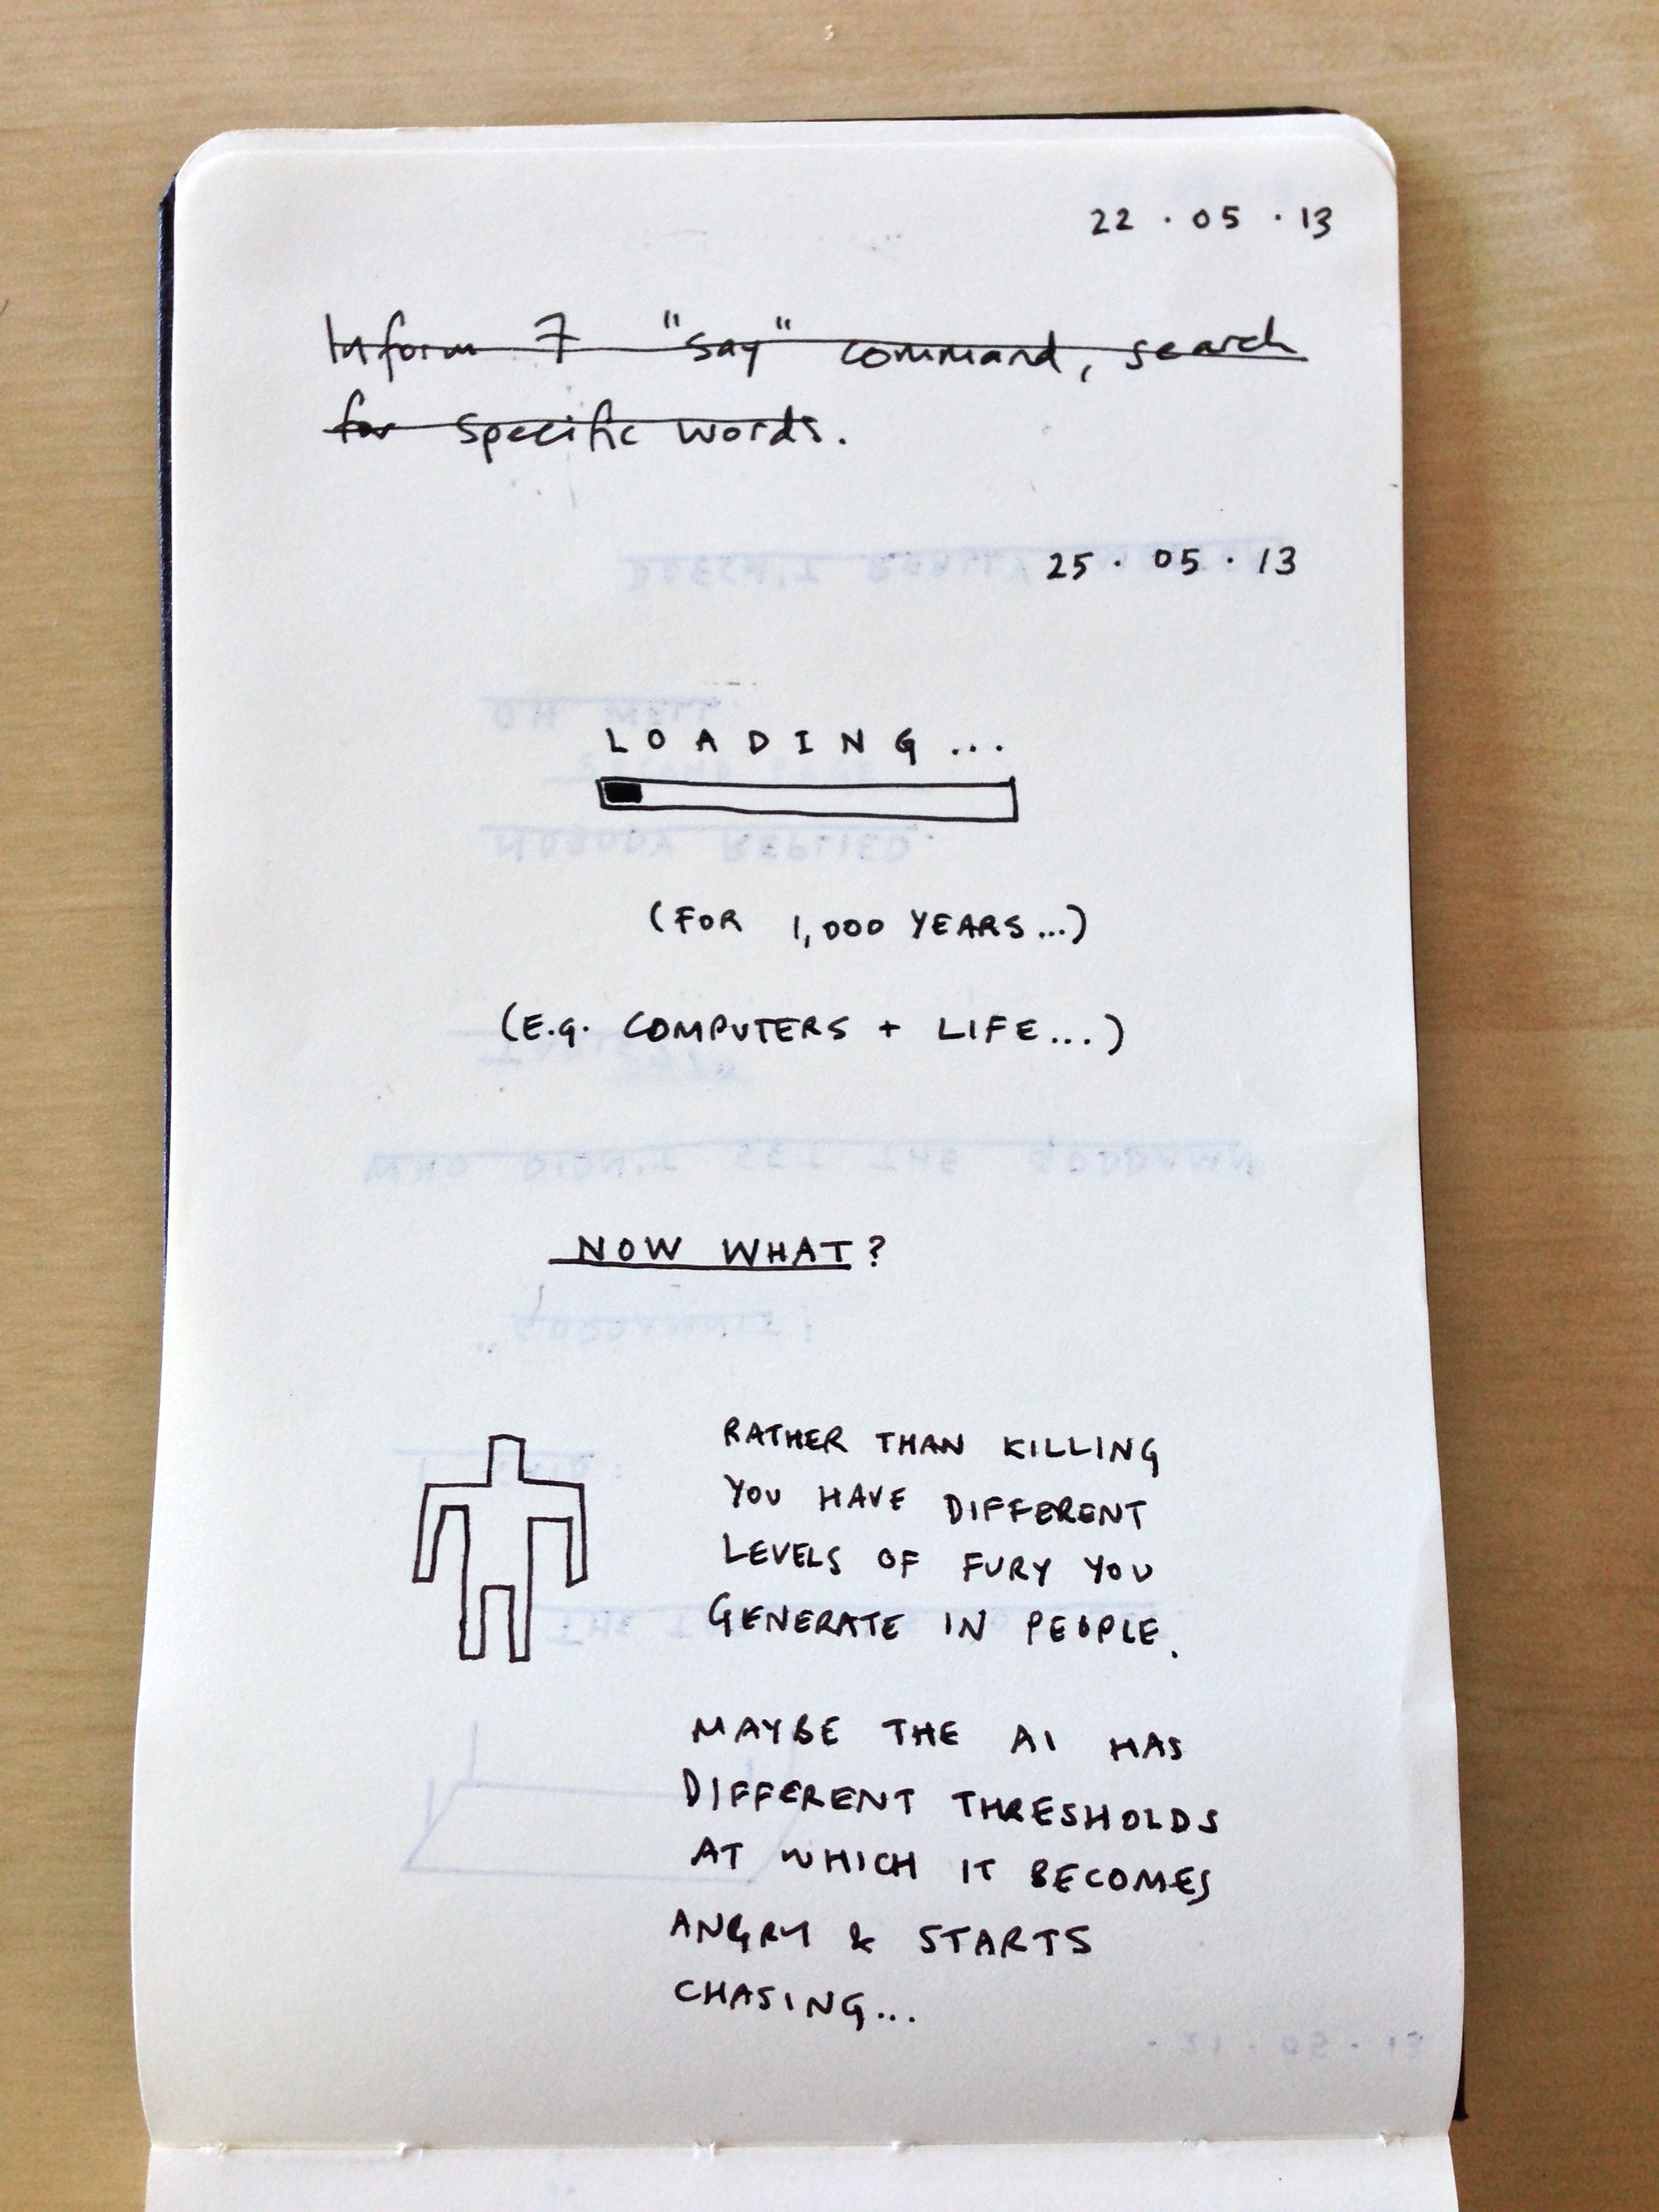 22 · 05 · 13
Inform 7 "say" command, search
for specific words.
25 · 05 · 13
LOADING...
(FOR 1,000 YEARS...)
(E.G. COMPUTERS + LIFE...)
NOW WHAT?
RATHER THAN KILLING
YOU HAVE DIFFERENT
LEVELS OF FURY YOU
GENERATE IN PEOPLE.
MAYBE THE AI HAS
DIFFERENT THRESHOLDS
AT WHICH IT BECOMES
ANGRY & STARTS
CHASING...